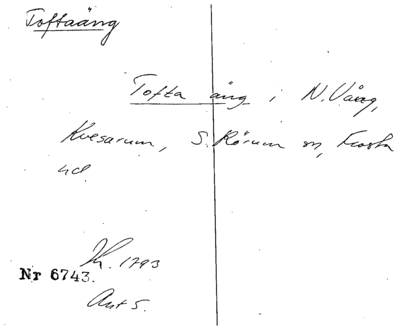 Toftaäng
Tofta äng i N. Vång,
Kvesarum, S. Rörum sn, Frosta
hd.
1793
Nr 6743.
Ant 5.